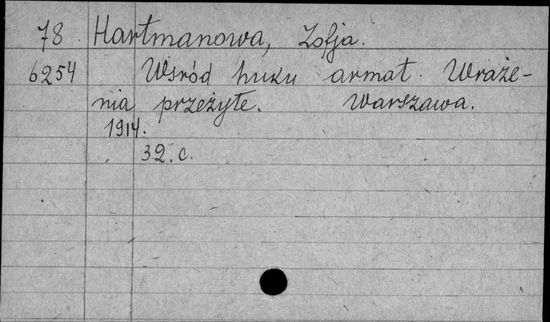 78 Hartmanowa, Zofja.
6254 Wsród huku armat. Wraże-
nia przeżyte. Warszawa.
1914.
32. c.